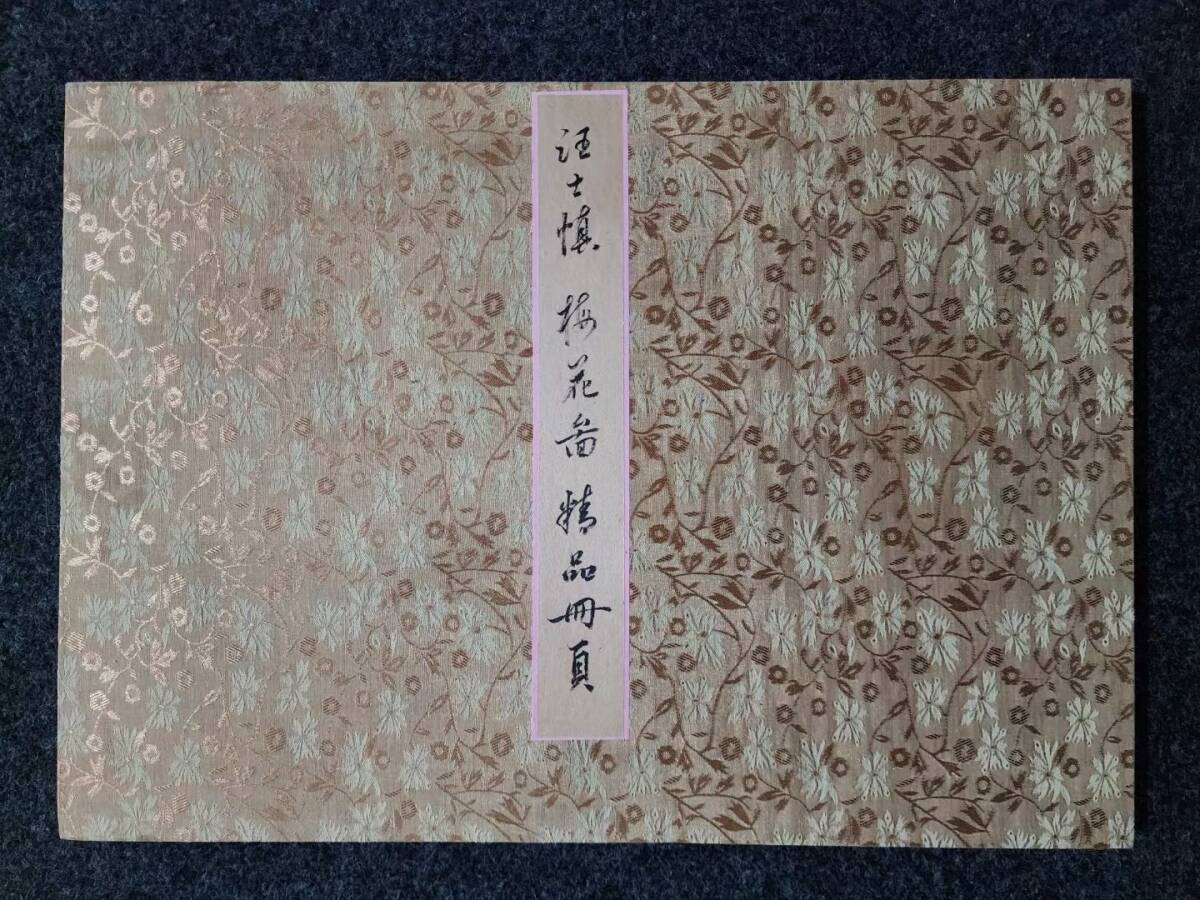 汪士慎 梅花图 精品册頁